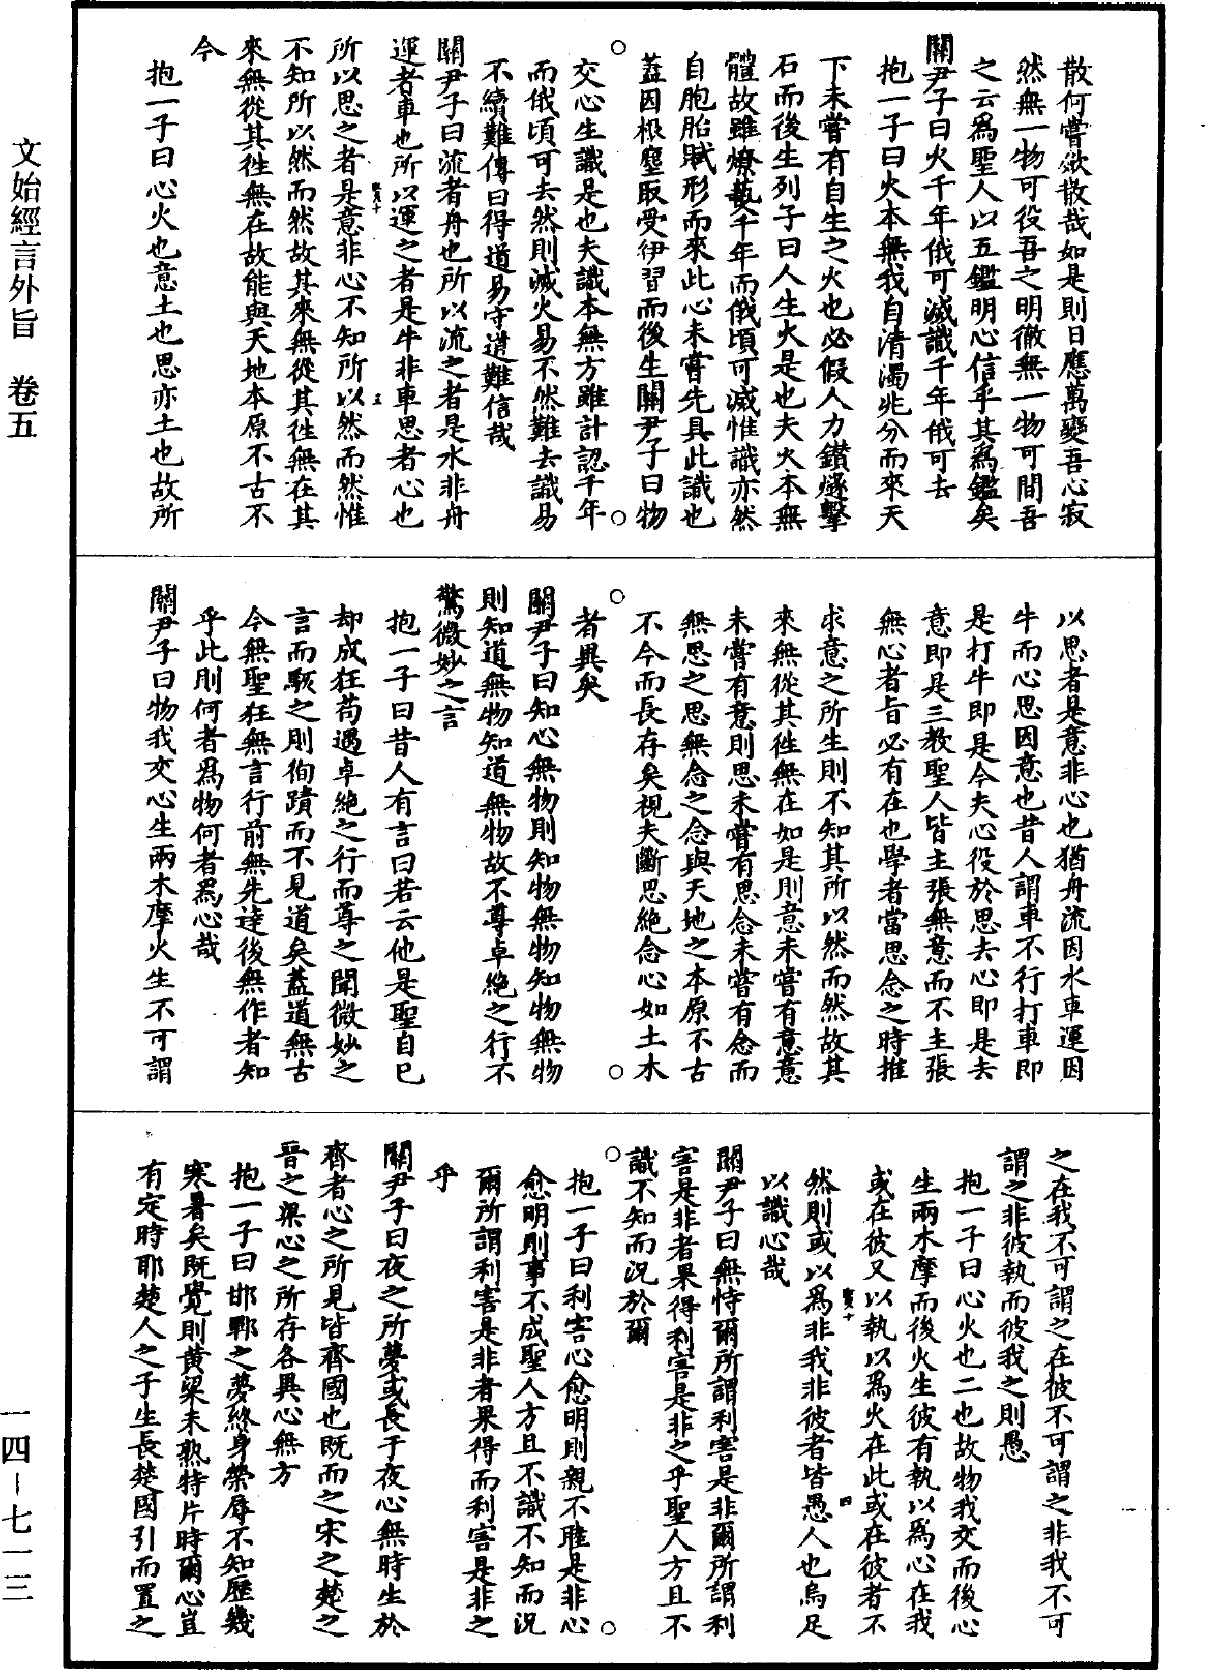 散何嘗欲散哉如是則日應萬變吾心寂
然無一物可役吾之明徹無一物可間吾
之云爲聖人以五鑑明心信乎其爲鑑矣
關尹子曰火千年俄可滅識千年俄可去
抱一子曰火本無我自清濁兆分而來天
下未嘗有自生之火也必假人力鑚燧擊
石而後生列子曰人生火是也夫火本無
體故雖燎爇千年而俄頃可滅惟識亦然
自胞胎賦形而來此心未嘗先具此識也
蓋因根塵取受伊習而後生關尹子曰物
交心生識是也夫識本無方雖計認千年
而俄頃可去然則滅火易不然難去識易
不續難傳曰得道易守道難信哉
關尹子曰流者舟也所以流之者是水非舟
運者車也所以運之者是牛非車思者心也
所以思之者是意非心不知所以然而然惟
不知所以然而然故其來無從其往無在其
來無從其往無在故能與天地本原不古不
今
抱一子曰心火也意土也思亦土也故所
以思者是意非心也猶舟流因水車運因
牛而心思因意也昔人謂車不行打車即
是打牛即是今夫心役於思去心即是去
意即是三教聖人皆主張無意而不主張
無心者旨必有在也學者當思念之時推
求意之所生則不知其所以然而然故其
來無從其往無在如是則意未嘗有意意
未嘗有意則思未嘗有思念未嘗有念而
無思之思無念之念與天地之本原不古
不今而長存矣視夫斷思絶念心如土木
者異矣
關尹子曰知心無物則知物無物知物無物
則知道無物知道無物故不尊卓絶之行不
驚微妙之言
抱一子曰昔人有言曰若云他是聖自己
却成狂苟遇卓絶之行而尊之聞微妙之
言而駭之則徇蹟而不見道矣蓋道無古
今無聖狂無言行前無先達後無作者知
乎此則何者爲物何者爲心哉
關尹子曰物我交心生兩木摩火生不可謂
之在我不可謂之在彼不可謂之非我不可
謂之非彼執而彼我之則愚
抱一子曰心火也二也故物我交而後心
生兩木摩而後火生彼有執以爲心在我
或在彼又以執以爲火在此或在彼者不
然則或以爲非我非彼者皆愚人也烏足
以識心哉
關尹子曰無恃爾所謂利害是非爾所謂利
害是非者果得利害是非之乎聖人方且不
識不知而況於爾
抱一子曰利害心愈明則親不睦是非心
愈明則事不成聖人方且不識不知而況
爾所謂利害是非者果得而利害是非之
乎
關尹子曰夜之所夢或長于夜心無時生於
齊者心之所見皆齊國也既而之宋之楚之
晉之梁心之所存各異心無方
抱一子曰邯鄲之夢終身榮辱不知歷幾
寒暑矣既覺則黄粱未熟特片時爾心豈
有定時耶楚人之子生長楚國引而置之
文始經言外旨　卷五
一四－七一三